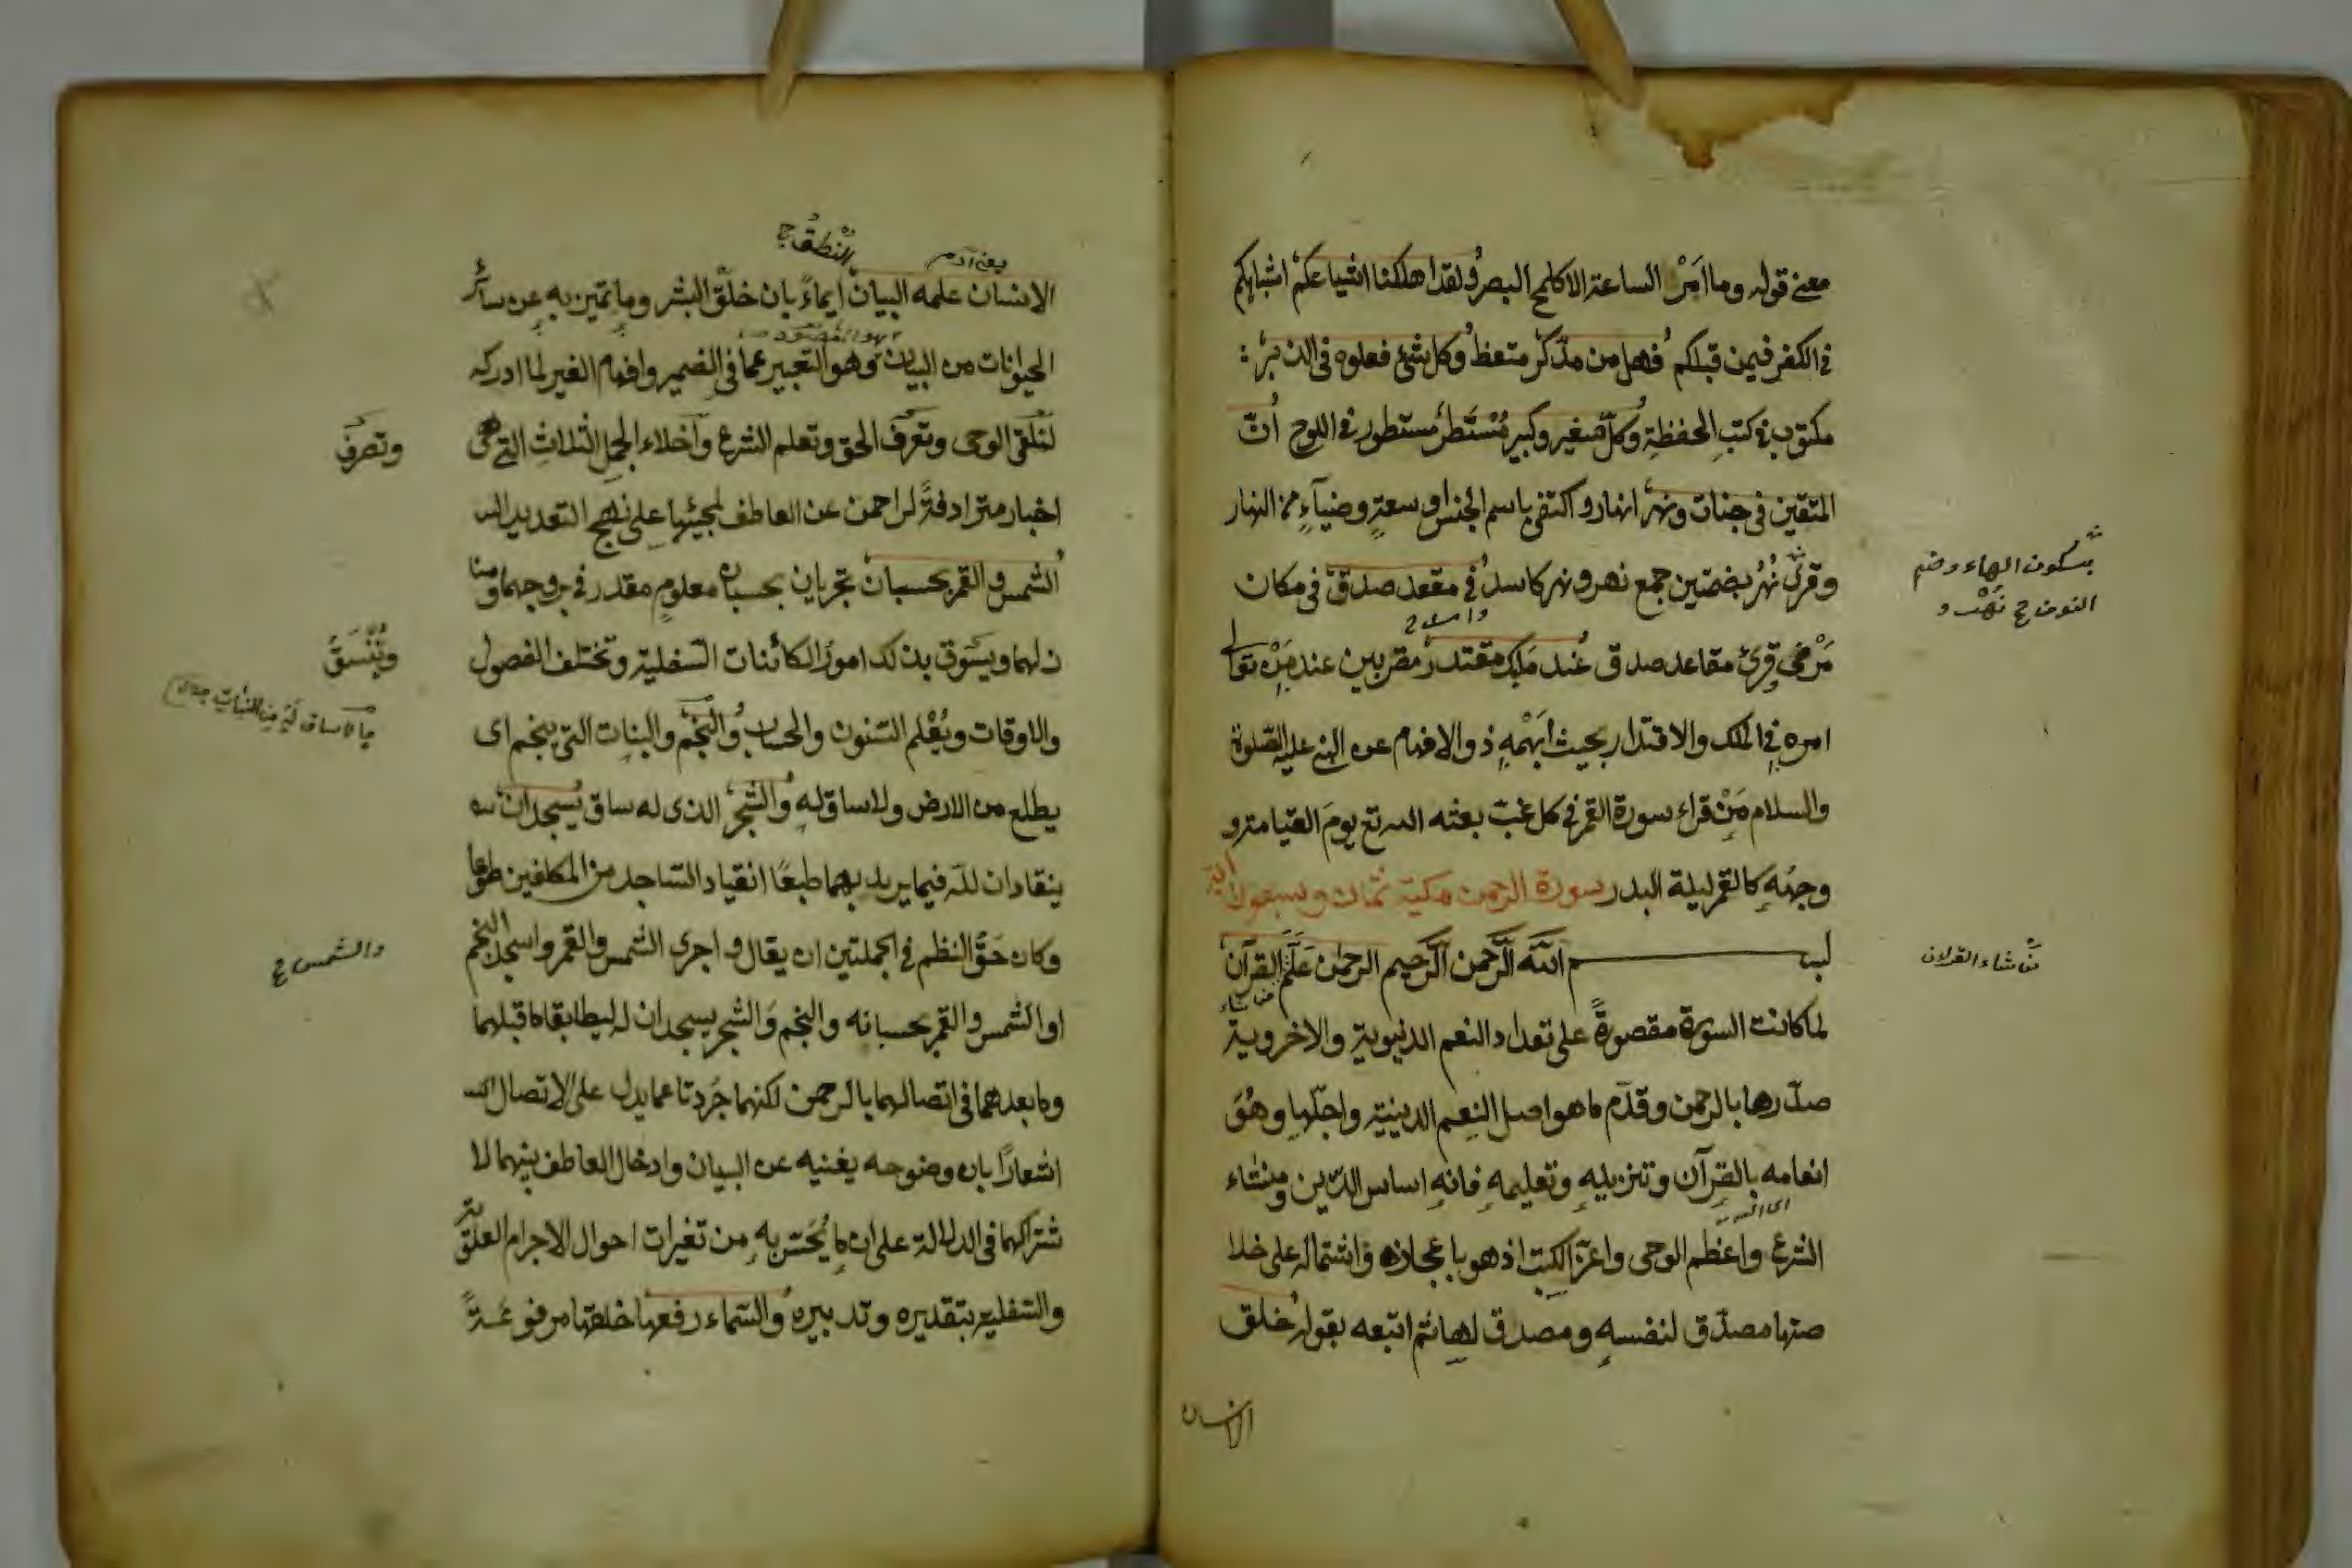 معنى قوله وما امر الساعة الا كلمح البصر ولقد اهلكنا اشياعكم اشباهكم
فى الكفر فيمن قبلكم فهل من مدّكر متعظ وكل شئ فعلوه فى الزبر
مكتوب فى كتب الحفظة وكلّ صغير وكبير مُسْتَطر مستطور فى اللوح انّ
المتقين فى جنات ونهر انهار واكتفى باسم الجنس او سعةٍ وضياءٍ من النهار
وقرئ نُهُر بضمتين جمع نهر ونهر كاسد فى مقعد صدق فى مكان
مَرْضى وقرئ مقاعد صدق عند مليك مقتدر مقربين عند مَنْ تعالى
امره فى الملك والاقتدار بحيث ابهمه ذو الافهام عن النبى عليه الصلوة
والسلام مَنْ قراء سورة القمر فى كل غبّ بعثه الله تع يومَ القيامة و
وجهُه كالقمر ليلة البدر سورة الرحمن مكية ثمان وسبعون اية
بسم الله الرّحمن الرّحيم الرحمٰن عَلَّمَ القرآن
لما كانت السورة مقصورةً على تعداد النعم الدنيوية والاخروية
صدّرها بالرحمن وقدّم ما هو اصل النعم الدينية واجلّها وهُوَ
انعامه بالقرآن وتنزيله وتعليمه فانه اساس الدّين ومنشاء
الشرع واعظم الوحى واعزّ الكتب اذ هو باعجازه واشتماله على خلا
صتها مصدّق لنفسه ومصدق لها ثم اتبعه بقوله خلق
الانسان
بسكون الهاء وضم
النون ج نَهْر و
من شاء القرلان
من شاء
الانسان علمه البيان ايماءً بان خلق البشر وما تميز به عن سائر
الحيوانات من البيان وهو التعبير عما فى الضمير وافهام الغير لما ادركه
لتلقى الوحى وتعرّف الحق وتعلم الشرع واخلاء الجمل الثلاث التى هى
اخبار مترادفةً لرحمن عن العاطف لمجيئها على نهج التعديد
الشمس والقمر بحسبان تجريان بحسبان معلومٍ مقدر فى بروجهما ومنا
زلهما ويتسوق بذلك امورُ الكائنات السفلية وتختلف الفصول
والاوقات ويُعْلم السّنون والحساب والنجم والنبات الّتى ينجم اى
يطلع من الارض ولا ساق له والشجر الذى له ساق يسجدان
ينقادان للّه فيما يريد بهما طبعًا انقياد السّاجد من المكلفين طوعا
وكان حَقَّ النظم فى الجملتين ان يقال واجرى الشمس والقمر واسجد النجم
او الشمس والقمر بحسبانه والنجم والشجر يسجدان له ليطابقا ما قبلهما
وما بعدهما فى اتصالهما بالرحمن لكنهما جُرِدتا عما يدل على الاتصال
اشعارًا بان وضوحه يغنيه عن البيان وادخال العاطف بينهما لا
شتراكهما فى الدلالة على ان ما يُحَسّ به من تغيرات احوال الاجرام العلوية
والسّفلية بتقديره وتدبيره والسّماء رفعها خلقها مرفوعةً
يعنى آدم
النُطق ج
وتصرف
ويُتّسَقُ
ما لا ساق له من النبات
والشمس ج